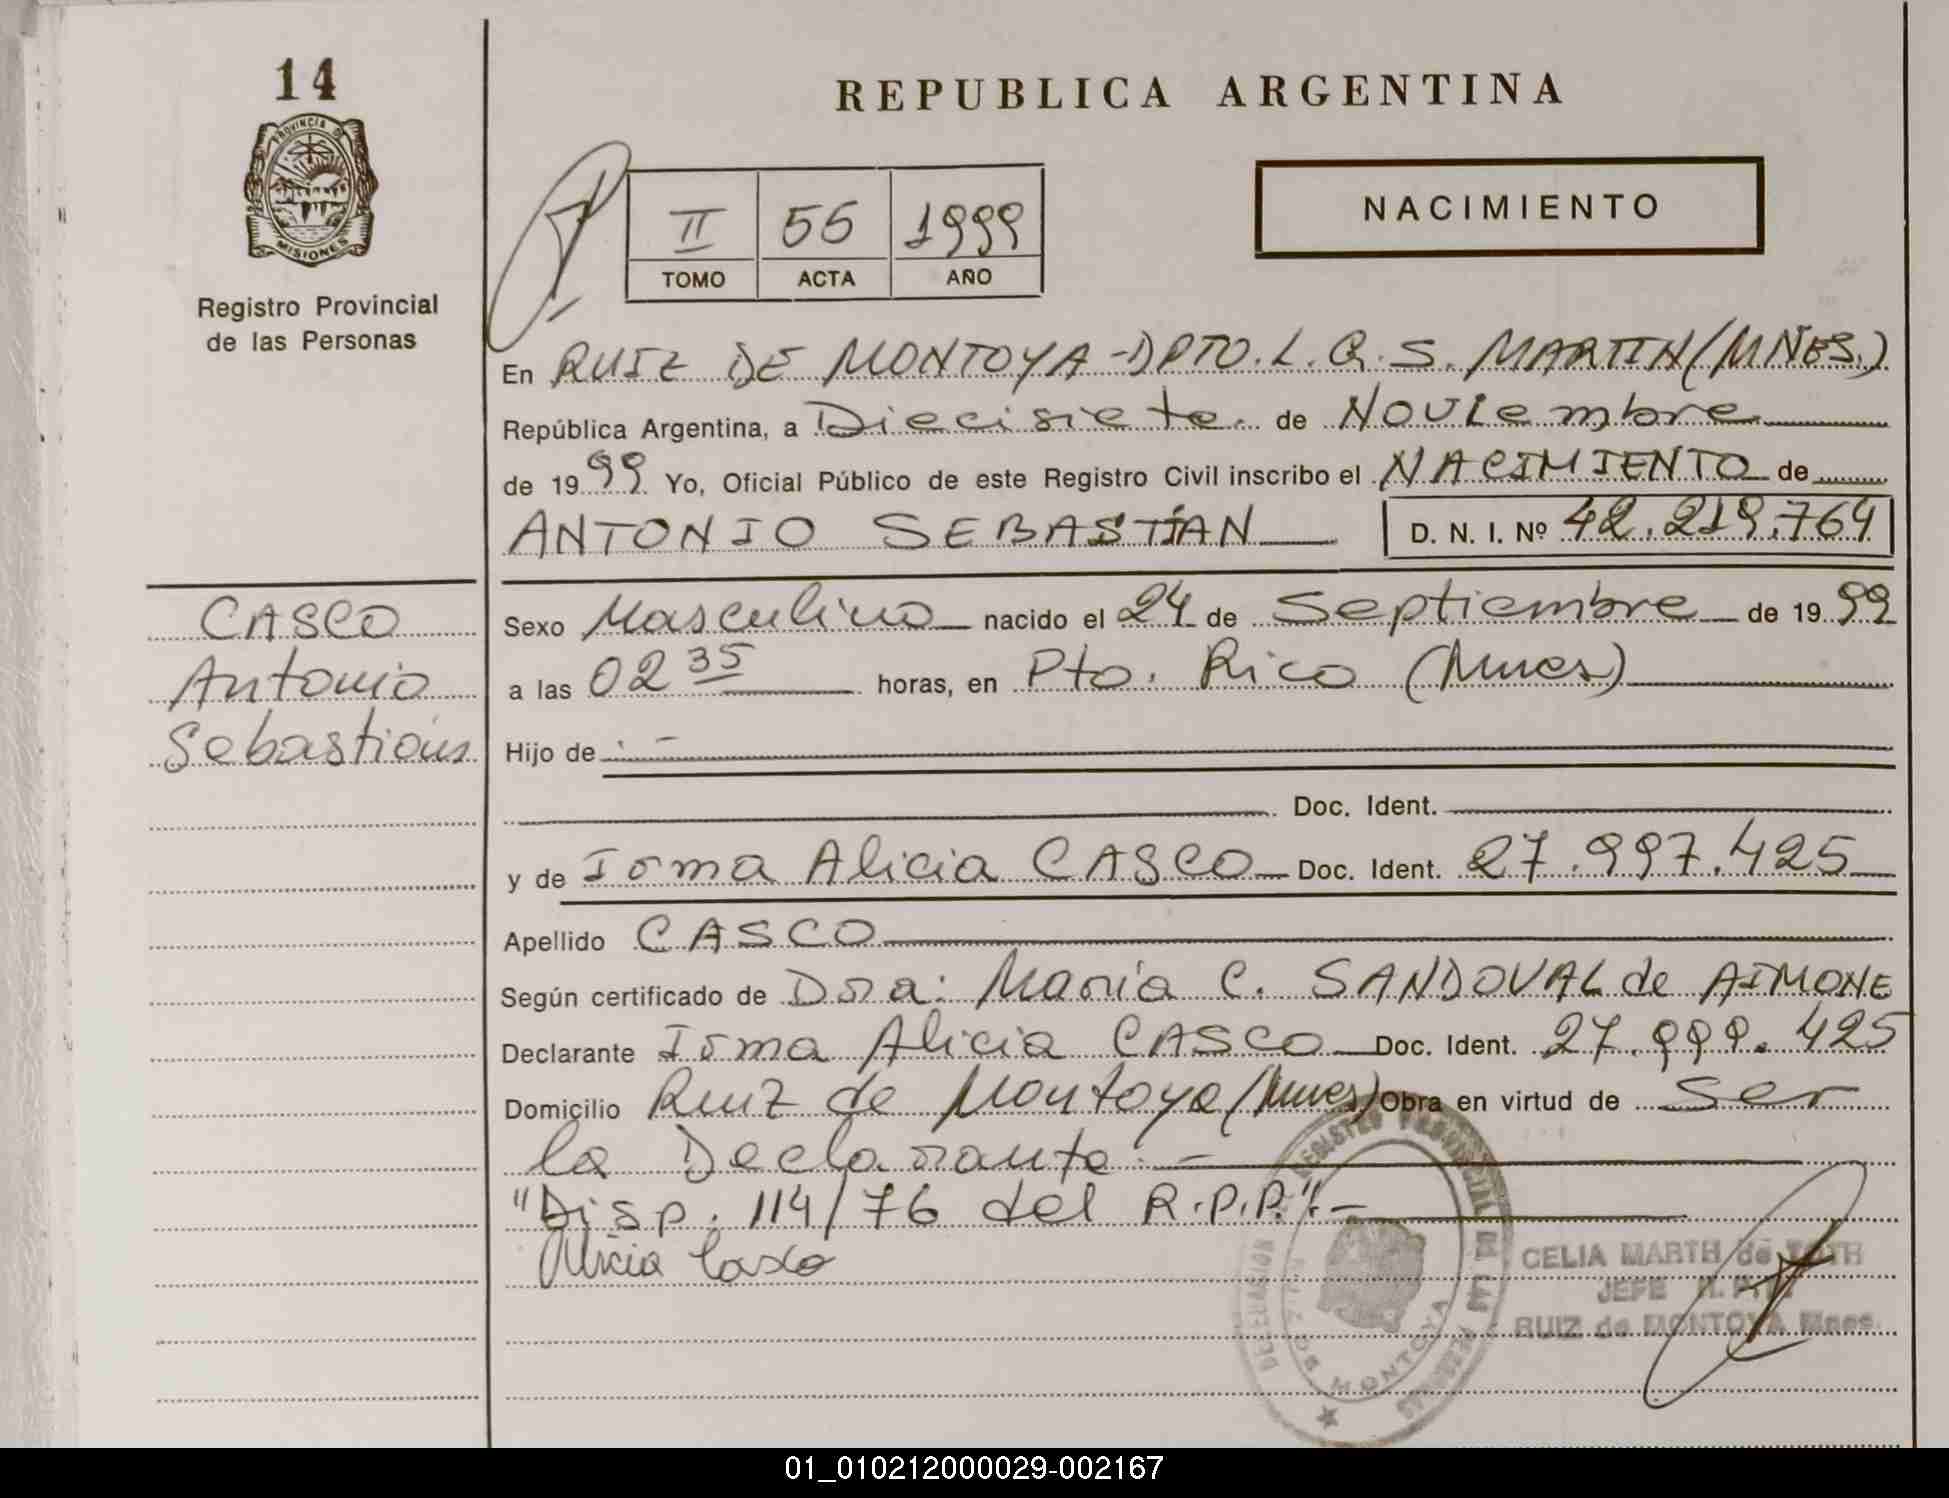 14
PROVINCIA DE
MISIONES
Registro Provincial
de las Personas
REPUBLICA ARGENTINA
II 55 1999
TOMO ACTA AÑO
NACIMIENTO
En RUIZ DE MONTOYA-DPTO. L. G. S. MARTIN (MNES.)
República Argentina, a Diecisiete de Noviembre
de 1999 Yo, Oficial Público de este Registro Civil inscribo el NACIMIENTO de
ANTONIO SEBASTIAN D. N. I. Nº 42.219.764
CASCO
Antonio
Sebastián
Sexo Masculino nacido el 24 de Septiembre de 1999
a las 02 35 horas, en Pto. Rico (Mnes)
Hijo de . -
Doc. Ident.
y de Irma Alicia CASCO Doc. Ident. 27.997.425
Apellido CASCO
Según certificado de Dra: María C. SANDOVAL de AIMONE
Declarante Irma Alicia CASCO Doc. Ident. 27.999.425
Domicilio Ruiz de Montoya (Mnes) Obra en virtud de Ser
la Declarante. -
"Disp. 114/76 del R.P.P.". -
Alicia Casco
REGISTRO PROVINCIAL DE LAS PERSONAS
DELEGACION
RUIZ DE MONTOYA
CELIA MARTH de TOTH
JEFE
RUIZ de MONTOYA Mnes.
01_010212000029-002167